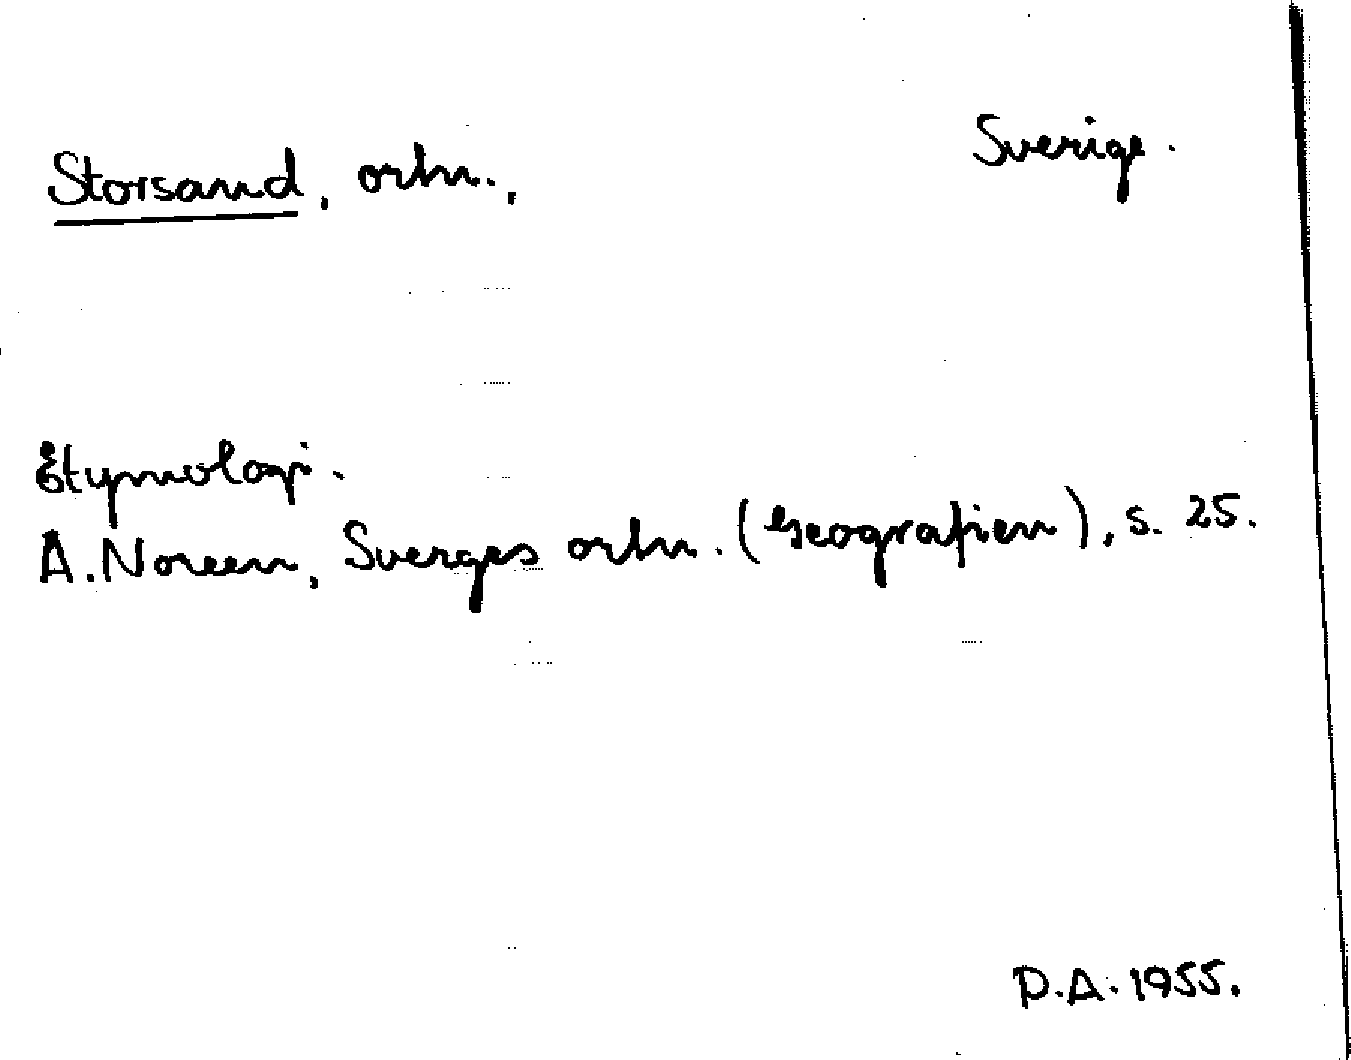 Storsand, ortn.,
Sverige.
Etymologi.
A. Noreen, Sverges ortn. (Geografien), s. 25.
D.A. 1955.